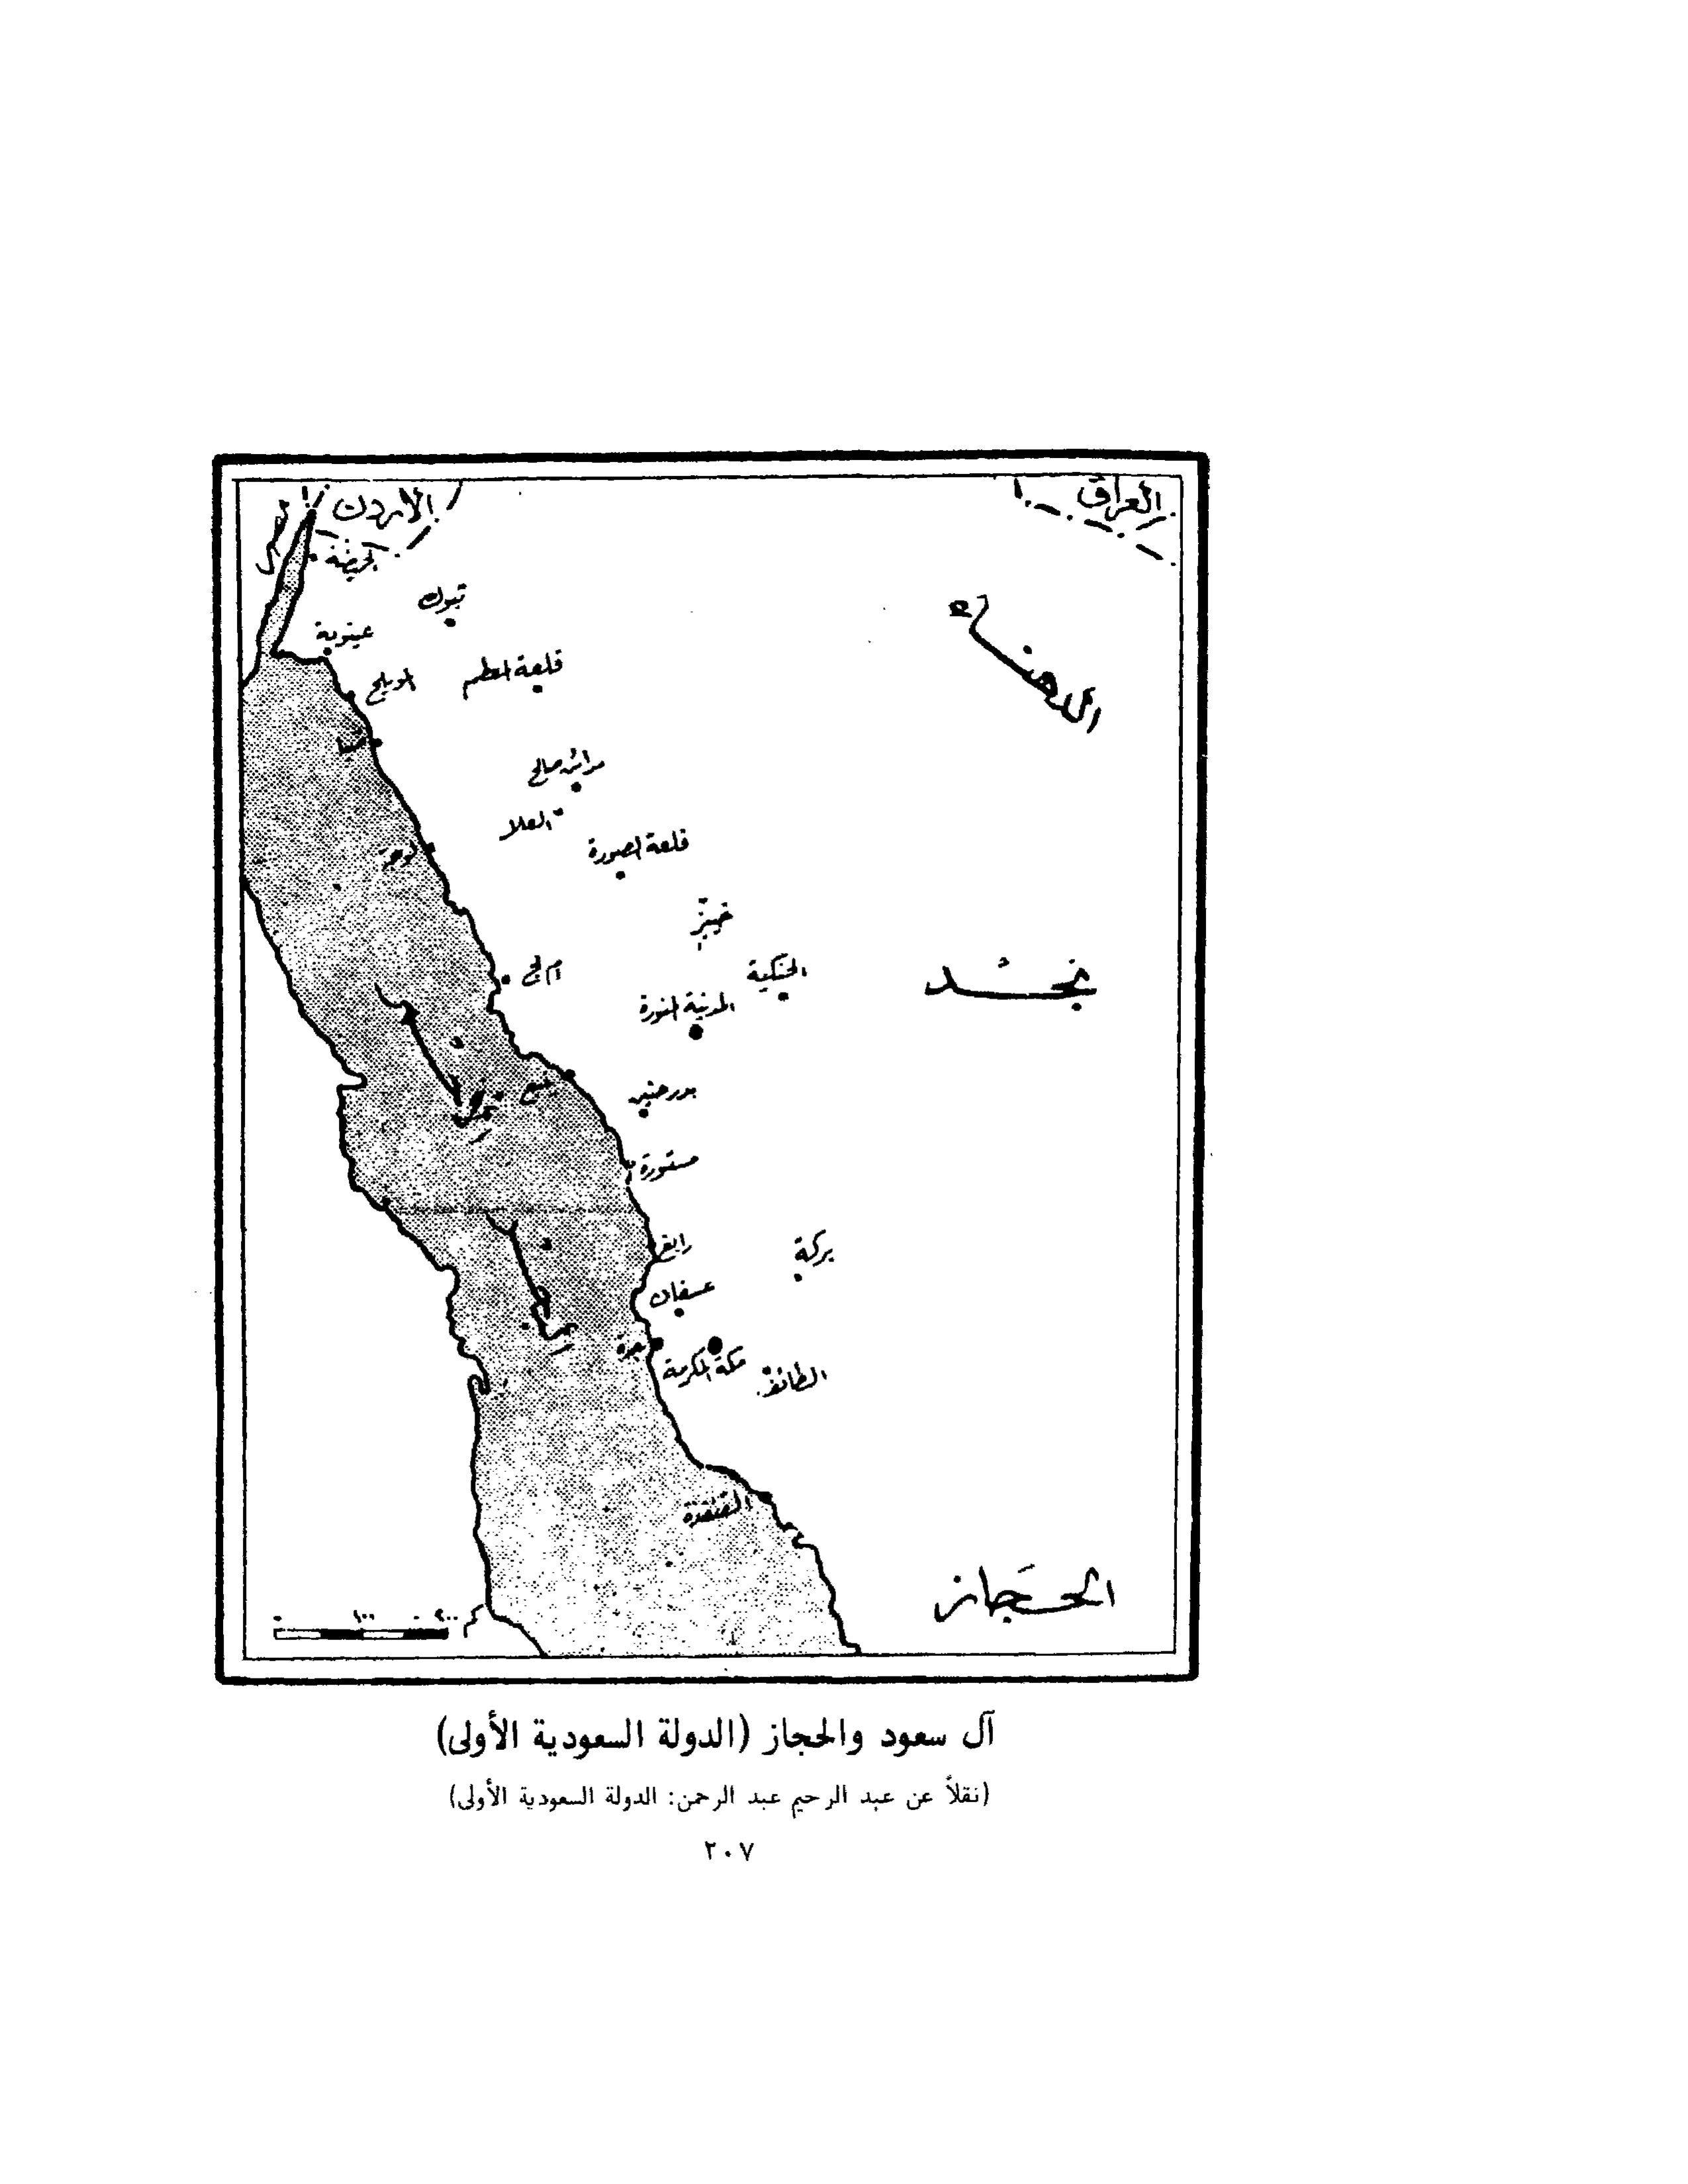 العراق
الأردن
تبوك
عينونة
المويلح
قلعة المعظم
ضبا
مدائن صالح
العلا
قلعة الصورة
خيبر
الحنكية
المدينة المنورة
نجد
ينبع
مستورة
رابغ
بركة
عسفان
جدة
مكة المكرمة
الطائف
القنفذة
الحجاز
٢٠٠ كم
١٠٠
٠
آل سعود والحجاز (الدولة السعودية الأولى)
(نقلاً عن عبد الرحيم عبد الرحمن: الدولة السعودية الأولى)
٢٠٧